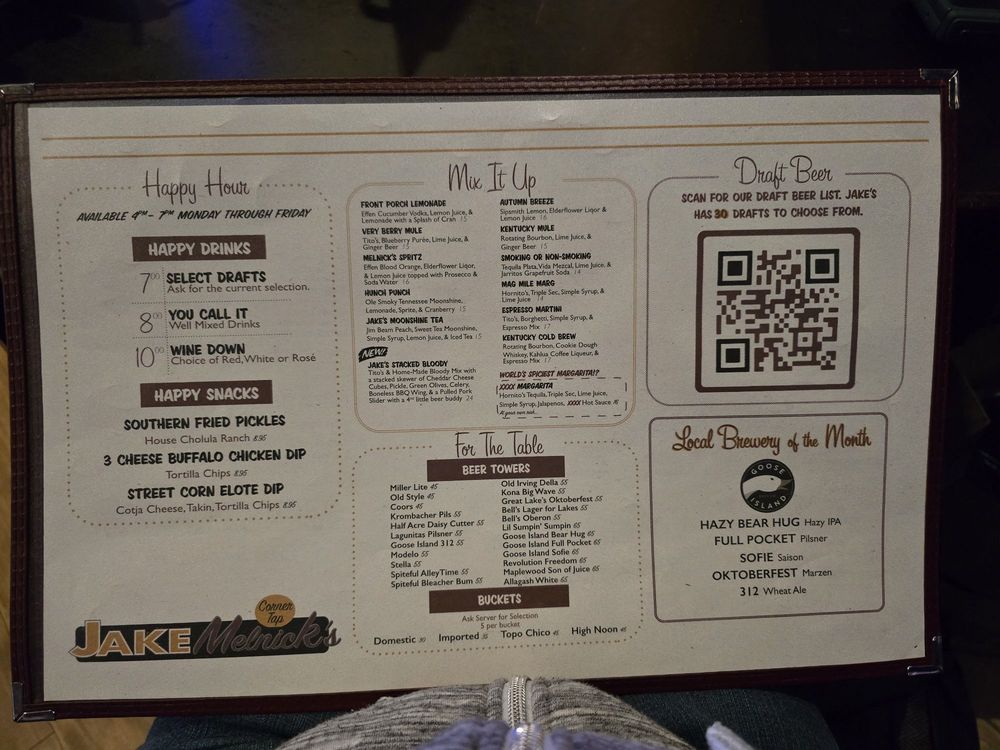 Happy Hour
AVAILABLE 4PM - 7PM MONDAY THROUGH FRIDAY
HAPPY DRINKS
700 SELECT DRAFTS
Ask for the current selection.
800 YOU CALL IT
Well Mixed Drinks
1000 WINE DOWN
Choice of Red, White or Rosé
HAPPY SNACKS
SOUTHERN FRIED PICKLES
House Cholula Ranch 8.95
3 CHEESE BUFFALO CHICKEN DIP
Tortilla Chips 8.95
STREET CORN ELOTE DIP
Cotja Cheese, Takin, Tortilla Chips 8.95
Corner
Tap
JAKE Melnick's
Mix It Up
FRONT PORCH LEMONADE
Effen Cucumber Vodka, Lemon Juice, &
Lemonade with a Splash of Cran 15
VERY BERRY MULE
Tito's, Blueberry Purée, Lime Juice, &
Ginger Beer 15
MELNICK'S SPRITZ
Effen Blood Orange, Elderflower Liqor,
& Lemon Juice topped with Prosecco &
Soda Water 16
HUNCH PUNCH
Ole Smoky Tennessee Moonshine,
Lemonade, Sprite, & Cranberry 15
JAKE'S MOONSHINE TEA
Jim Beam Peach, Sweet Tea Moonshine,
Simple Syrup, Lemon Juice, & Iced Tea 15
NEW!
JAKE'S STACKED BLOODY
Tito's & Home-Made Bloody Mix with
a stacked skewer of Cheddar Cheese
Cubes, Pickle, Green Olives, Celery,
Boneless BBQ Wing, & a Pulled Pork
Slider with a 4oz little beer buddy 24
AUTUMN BREEZE
Sipsmith Lemon, Elderflower Liqor &
Lemon Juice 16
KENTUCKY MULE
Rotating Bourbon, Lime Juice, &
Ginger Beer 15
SMOKING OR NON-SMOKING
Tequila Plata, Vida Mezcal, Lime Juice, &
Jarritos Grapefruit Soda 14
MAG MILE MARG
Hornito's, Triple Sec, Simple Syrup, &
Lime Juice 14
ESPRESSO MARTINI
Tito's, Borghetti, Simple Syrup, &
Espresso Mix 17
KENTUCKY COLD BREW
Rotating Bourbon, Cookie Dough
Whiskey, Kahlua Coffee Liqueur, &
Espresso Mix 17
WORLD'S SPICIEST MARGARITA!?
XXXX MARGARITA
Hornito's Tequila, Triple Sec, Lime Juice,
Simple Syrup, Jalapenos, XXXX Hot Sauce
At your own risk...
For The Table
BEER TOWERS
Miller Lite 45
Old Style 45
Coors 45
Krombacher Pils 55
Half Acre Daisy Cutter 55
Lagunitas Pilsner 55
Goose Island 312 55
Modelo 55
Stella 55
Spiteful AlleyTime 55
Spiteful Bleacher Bum 55
Old Irving Della 55
Kona Big Wave 55
Great Lake's Oktoberfest 55
Bell's Lager for Lakes 55
Bell's Oberon 55
Lil Sumpin' Sumpin 65
Goose Island Bear Hug 65
Goose Island Full Pocket 65
Goose Island Sofie 65
Revolution Freedom 65
Maplewood Son of Juice 65
Allagash White 65
BUCKETS
Ask Server for Selection
5 per bucket
Domestic 30 Imported 35 Topo Chico 45 High Noon 45
Draft Beer
SCAN FOR OUR DRAFT BEER LIST. JAKE'S
HAS 30 DRAFTS TO CHOOSE FROM.
Local Brewery of the Month
GOOSE
ISLAND
HAZY BEAR HUG Hazy IPA
FULL POCKET Pilsner
SOFIE Saison
OKTOBERFEST Marzen
312 Wheat Ale